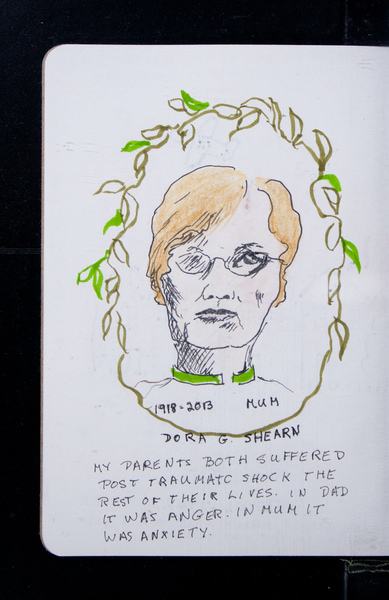 1918-2013 MUM
DORA G. SHEARN
MY PARENTS BOTH SUFFERED
POST TRAUMATC SHOCK THE
REST OF THEIR LIVES. IN DAD
IT WAS ANGER. IN MUM IT
WAS ANXIETY.